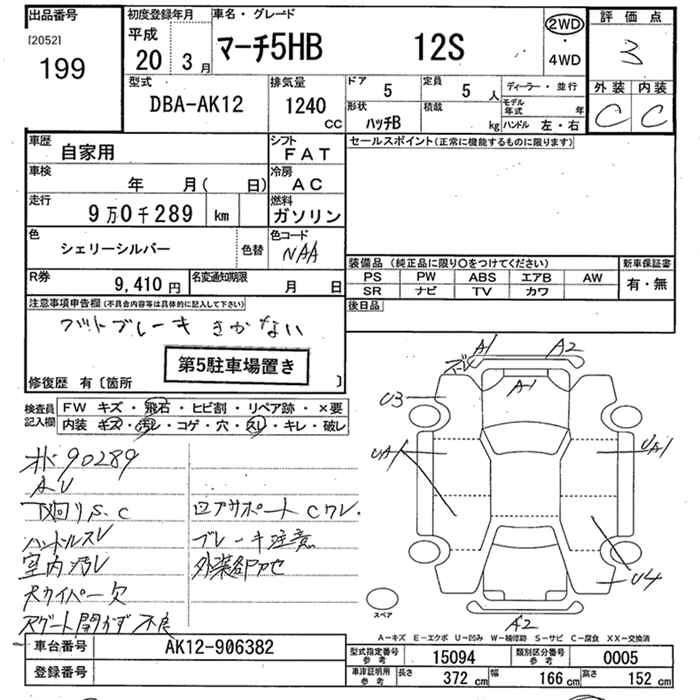 出品番号
[2052]
199
初度登録年月
平成
20 3月
車名・グレード
マーチ5HB 12S
2WD
・
4WD
評価点
3
外装 内装
C C
型式
DBA-AK12
排気量
1240
CC
ドア
5
定員
5 人
ディーラー・並行
形状
ハッチB
積載
kg
モデル年式 年
ハンドル 左・右
車歴
自家用
シフト
FAT
車検
年 月( 日)
冷房
AC
走行
9万0千289 km
燃料
ガソリン
色
シェリーシルバー
色替
色コード
NAA
R券
9,410円
名変通知期限
月 日
セールスポイント(正常に機能するものに限ります)
装備品(純正品に限り○をつけてください)
PS PW ABS エアB AW
SR ナビ TV カワ
新車保証書
有・無
後日品
注意事項申告欄(不具合内容等は具体的に記入して下さい)
フットブレーキきかない
第5駐車場置き
修復歴 有〔箇所 〕
検査員
記入欄
FW キズ・飛石・ヒビ割・リペア跡・×要
内装 キズ・汚レ・コゲ・穴・スレ・キレ・破レ
90289
AU
下廻りS.C
ハンドルスレ
室内汚レ
欠
開かず 不良
コアサポートCワレ
ブレーキ注意
A1 A2
A1
U3
UA1
UA1
U4
A2
スペア
A－キズ E－エクボ U－凹み W－補修跡 S－サビ C－腐食 XX－交換済
車台番号
AK12-906382
登録番号
型式指定番号
参考
15094
類別区分番号
参考
0005
車庫証明用
参考
長さ 372 cm 幅 166 cm 高さ 152 cm